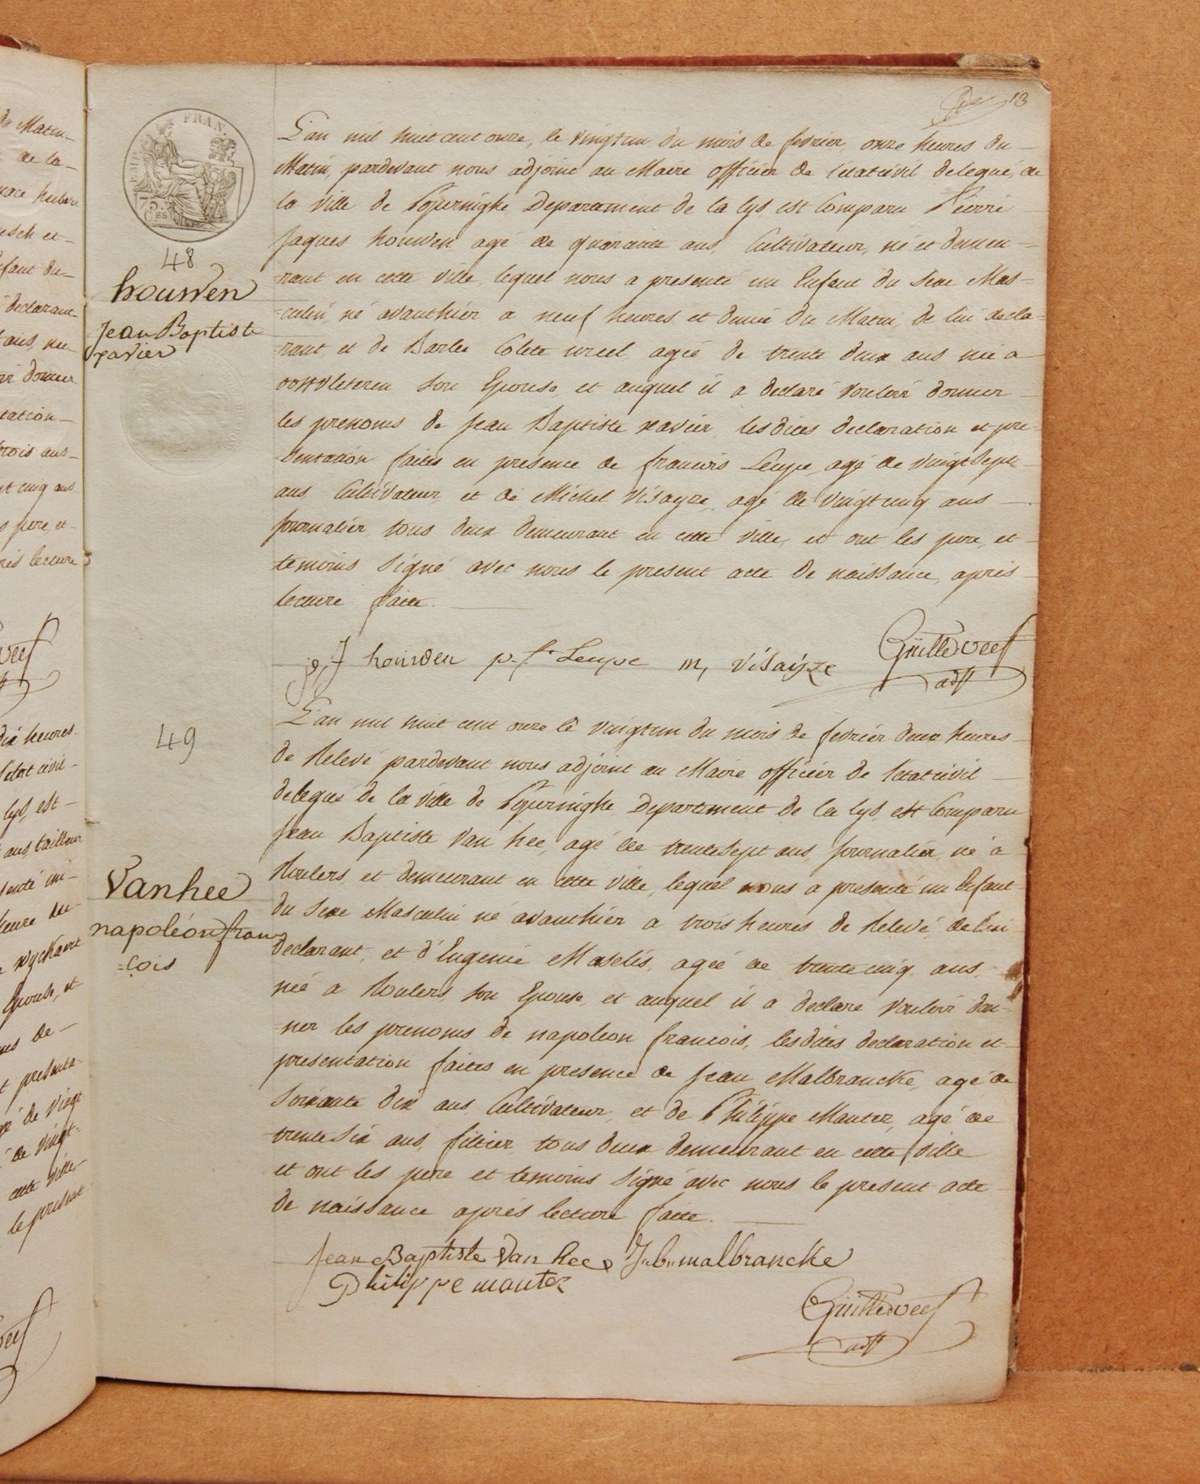 13
FRAN.
75 Ces
48
houwen
Jean Baptiste
xavier
L'an mil huit cent onze, le vingtun du mois de fevrier, onze heures du
Matin, pardevant nous adjoint au Maire officier de l'etatcivil delegué, de
la ville de Poperinghe Departement de la lys est Comparu Pierre
Jaques houwen agé de quarante ans, Cultivateur, né et demeu-
rant en cette ville, lequel nous a presenté un Enfant du sexe Mas-
culin, né avanthier a neuf heures et demie du Matin, de lui decla-
rant et de Barbe Colete agée de trente deux ans née a
oostvleteren son Epouse, et auquel il a declaré vouloir donner
les prenoms de Jean Baptiste xavier, lesdites declaration et pre-
sentation faites en presence de francois Leupe agé de vingt sept
ans Cultivateur et de Michel Visayze, agé de vingt cinq ans
journalier, tous deux demeurant en cette ville, et ont les pere, et
temoins signé avec nous le present acte de naissance, aprés
lecture faite.
p, J houwen p. f. Leupe m, visaÿze
adjt
49
Vanhee
napoléon fran
=çois
L'an mil huit cent onze le vingtun du mois de fevrier deux heures
de Relevé pardevant nous adjoint au Maire officier de l'etatcivil
delegué de la ville de Poperinghe Departement de la lys, est Comparu
Jean Baptiste Van hee, agé de trente sept ans, journalier, né à
Roulers, et demeurant en cette ville, lequel nous a presenté un Enfant
du sexe Masculin né avanthier a trois heures de Relevé, de lui
declarant, et d'Eugenie Maselis, agée de trente cinq ans,
née a Roulers son Epouse, et auquel il a declaré vouloir don-
ner les prenoms de napoléon francois, lesdites declaration et
presentation faites en presence de Jean Malbrancke, agé de
soixante dix ans Cultivateur, et de Philippe Mantez, agé de
trente six ans, filtier, tous deux demeurant en cette ville
et ont les pere et temoins signé avec nous le present acte
de naissance aprés lecture faite.
Jean Baptiste Van hee J. b. malbrancke
Philippe mantez
adjt